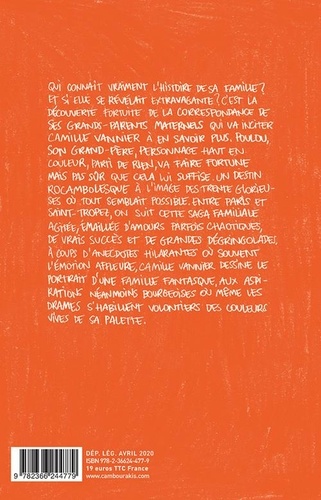 QUI CONNAÎT VRAIMENT L'HISTOIRE DE SA FAMILLE ?
ET SI ELLE SE RÉVÉLAIT EXTRAVAGANTE ? C'EST LA
DÉCOUVERTE FORTUITE DE LA CORRESPONDANCE DE
SES GRANDS-PARENTS MATERNELS QUI VA INCITER
CAMILLE VANNIER À EN SAVOIR PLUS. POULOU,
SON GRAND-PÈRE, PERSONNAGE HAUT EN
COULEUR, PARTI DE RIEN, VA FAIRE FORTUNE
MAIS PAS SÛR QUE CELA LUI SUFFISE. UN DESTIN
ROCAMBOLESQUE À L'IMAGE DES TRENTE GLORIEU-
SES OÙ TOUT SEMBLAIT POSSIBLE. ENTRE PARIS ET
SAINT-TROPEZ, ON SUIT CETTE SAGA FAMILIALE
AGITÉE, ÉMAILLÉE D'AMOURS PARFOIS CHAOTIQUES,
DE VRAIS SUCCÈS ET DE GRANDES DÉGRINGOLADES,
À COUPS D'ANECDOTES HILARANTES OÙ SOUVENT
L'ÉMOTION AFFLEURE, CAMILLE VANNIER DESSINE LE
PORTRAIT D'UNE FAMILLE FANTASQUE, AUX ASPI-
RATIONS NÉANMOINS BOURGEOISES OÙ MÊME LES
DRAMES S'HABILLENT VOLONTIERS DES COULEURS
VIVES DE SA PALETTE.
DÉP. LÉG. AVRIL 2020
ISBN 978-2-36624-477-9
19 euros TTC France
www.cambourakis.com
9 782366 244779